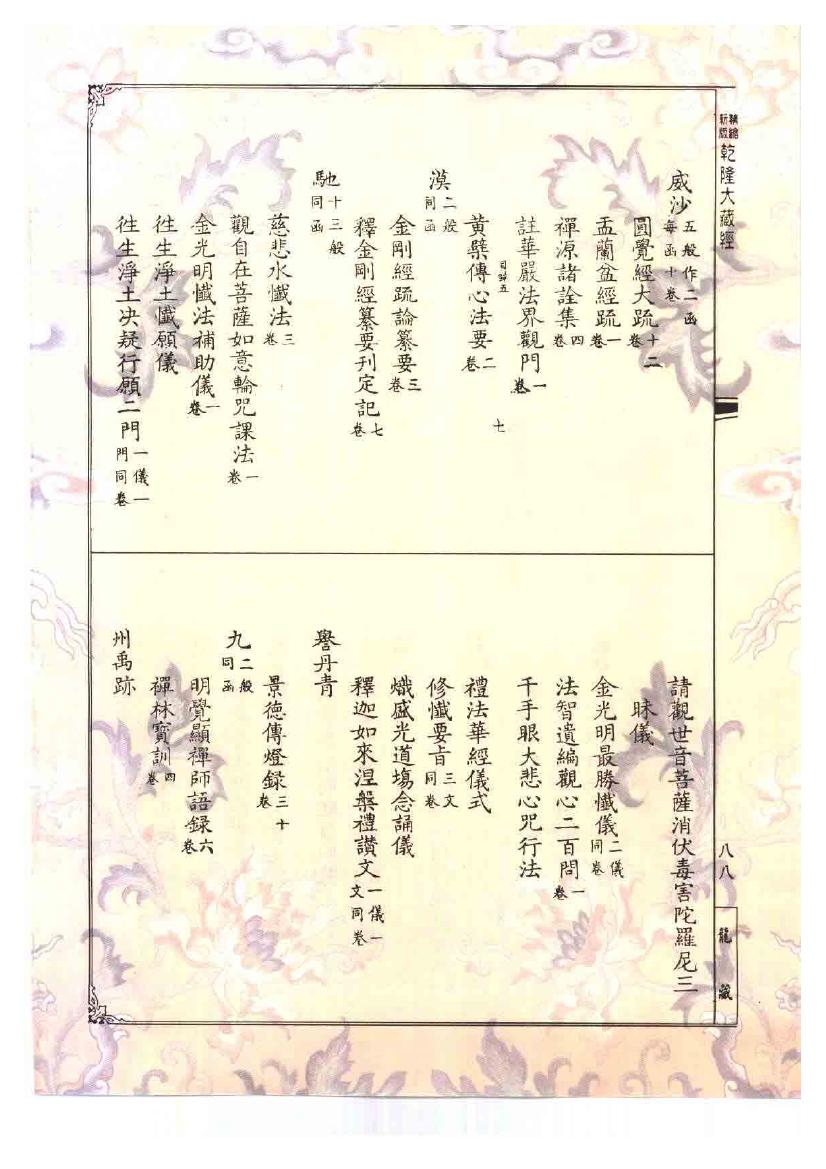 精繪新版乾隆大藏經
威沙 五般作二函每函十卷
圓覺經大疏 十二卷
盂蘭盆經疏 一卷
禪源諸詮集 四卷
註華嚴法界觀門 一卷
目錄五
七
黃檗傳心法要 二卷
漠 二般同函
金剛經疏論纂要 三卷
釋金剛經纂要刊定記 七卷
馳 十三般同函
慈悲水懺法 三卷
觀自在菩薩如意輪咒課法 一卷
金光明懺法補助儀 一卷
徃生淨土懺願儀
徃生淨土决疑行願二門 一儀一門同卷
請觀世音菩薩消伏毒害陀羅尼三
昧儀
金光明最勝懺儀 二儀同卷
法智遺編觀心二百問 一卷
千手眼大悲心咒行法
禮法華經儀式
修懺要旨 三文同卷
熾盛光道塲念誦儀
釋迦如來涅槃禮讚文 一儀一文同卷
譽丹青
景德傳燈録 三十卷
九 二般同函
明覺顯禪師語録 六卷
禪林寶訓 四卷
州禹跡
八八
龍藏